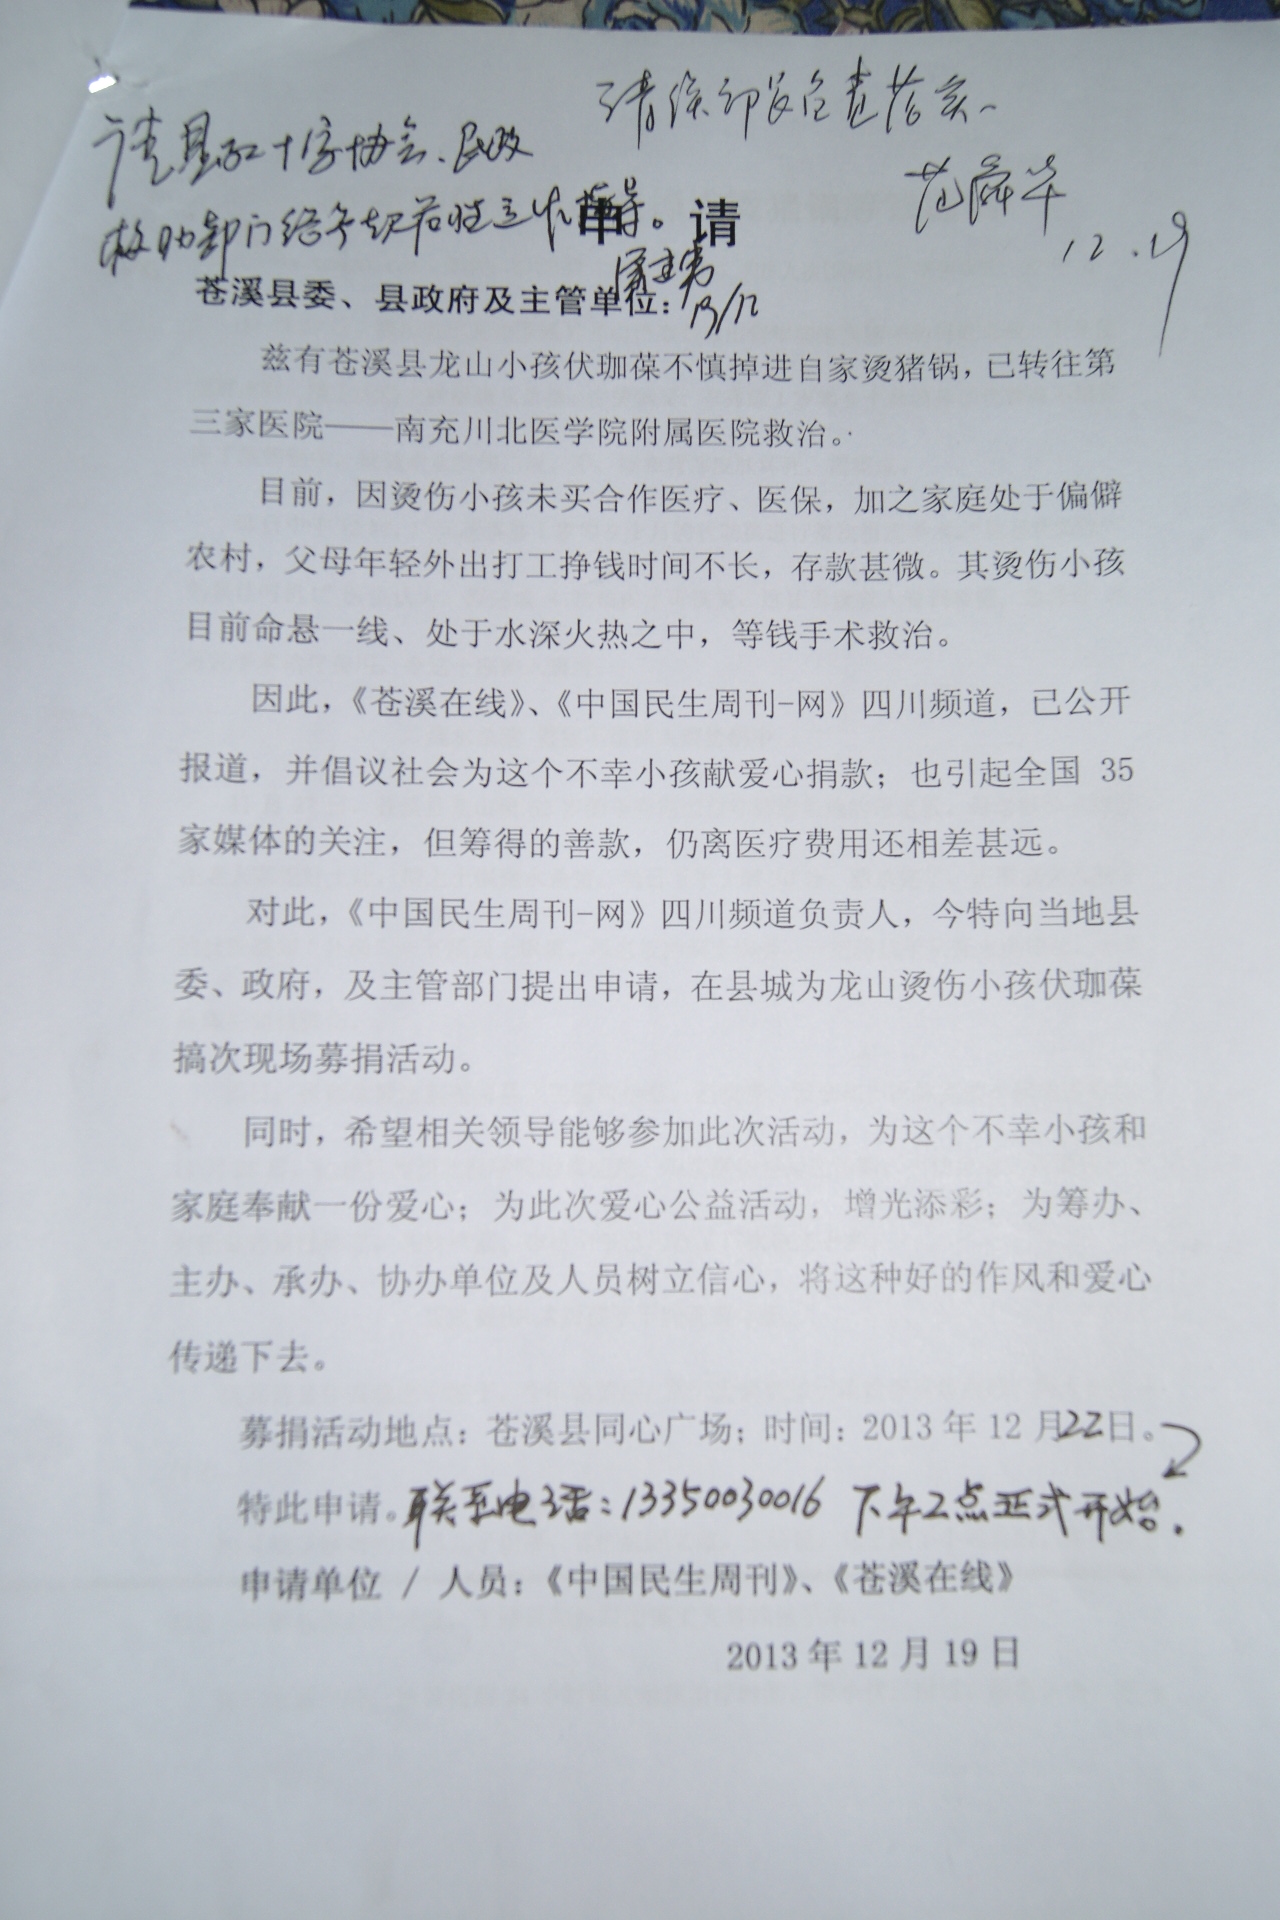 请县红十字协会、民政
救助部门给予规范性工作指导。
请 部长 查落实、
范舜华
12.19
19/12
申 请
苍溪县委、县政府及主管单位:
兹有苍溪县龙山小孩伏珈葆不慎掉进自家烫猪锅，已转往第
三家医院——南充川北医学院附属医院救治。
目前，因烫伤小孩未买合作医疗、医保，加之家庭处于偏僻
农村，父母年轻外出打工挣钱时间不长，存款甚微。其烫伤小孩
目前命悬一线、处于水深火热之中，等钱手术救治。
因此，《苍溪在线》、《中国民生周刊-网》四川频道，已公开
报道，并倡议社会为这个不幸小孩献爱心捐款；也引起全国 35
家媒体的关注，但筹得的善款，仍离医疗费用还相差甚远。
对此，《中国民生周刊-网》四川频道负责人，今特向当地县
委、政府，及主管部门提出申请，在县城为龙山烫伤小孩伏珈葆
搞次现场募捐活动。
同时，希望相关领导能够参加此次活动，为这个不幸小孩和
家庭奉献一份爱心；为此次爱心公益活动，增光添彩；为筹办、
主办、承办、协办单位及人员树立信心，将这种好的作风和爱心
传递下去。
募捐活动地点：苍溪县同心广场；时间：2013 年 12 月22日。
特此申请。联系电话：13350030016 下午2点正式开始。
申请单位 / 人员：《中国民生周刊》、《苍溪在线》
2013 年 12 月 19 日